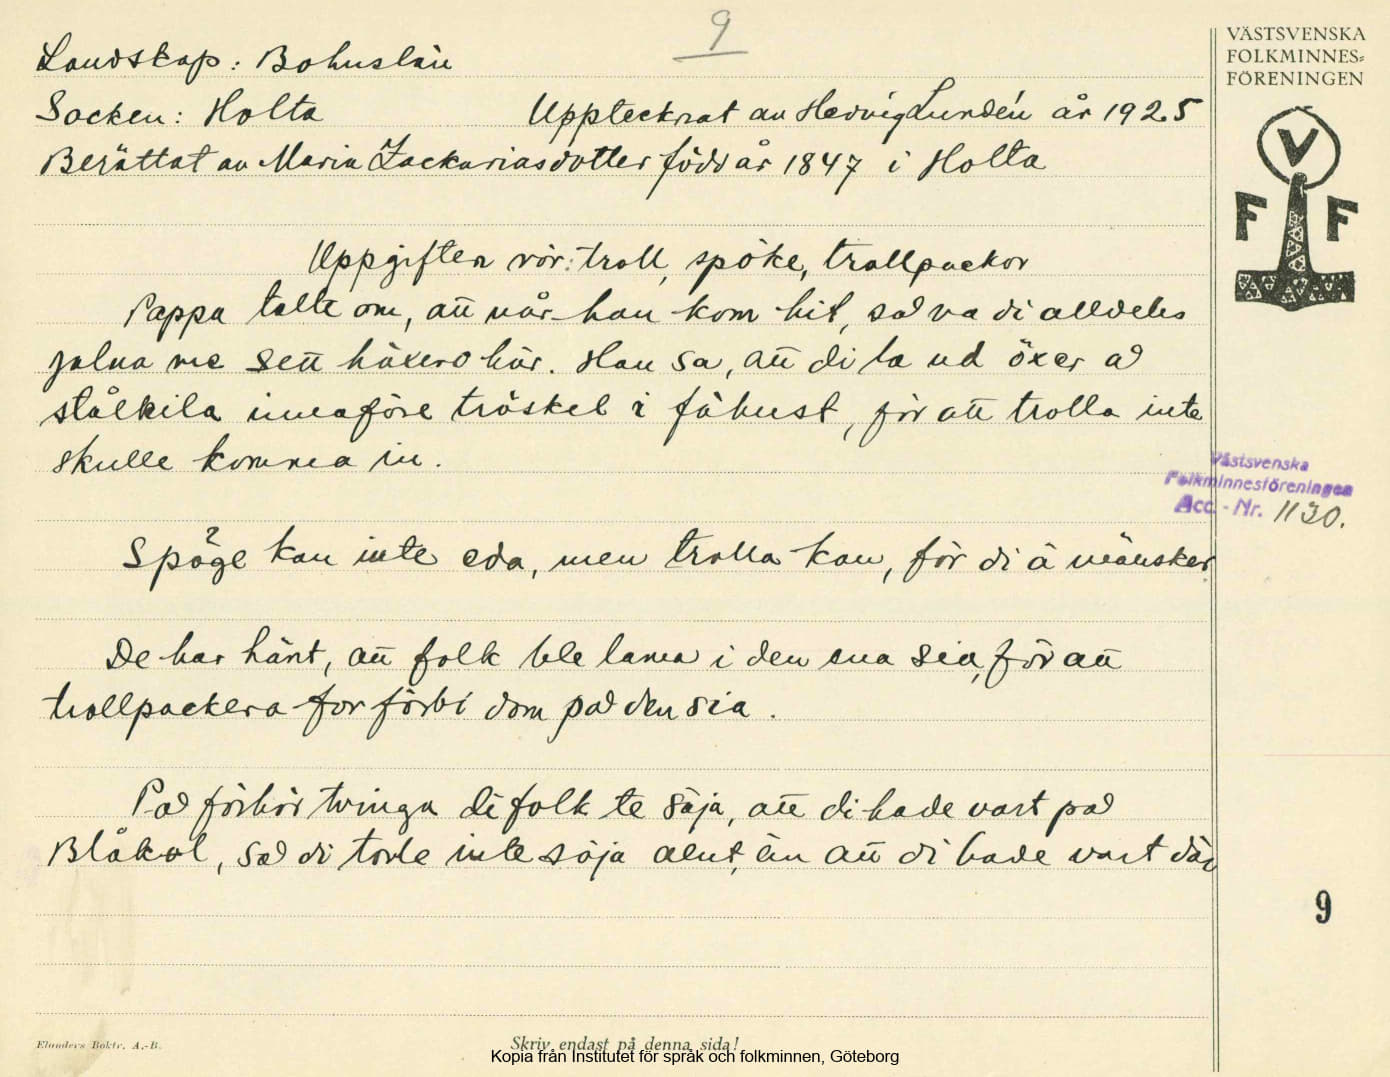 9
VÄSTSVENSKA
FOLKMINNES=
FÖRENINGEN
V
F F
Landskap: Bohuslän
Socken: Holta Upptecknat av Hedvig Lundén år 1925
Berättat av Maria Zackariasdotter född år 1847 i Holta
Uppgiften rör: troll, spöke, trollpackor
Pappa talte om, att når han kom hit, sad va di alldeles
galna me sett häxero här. Han sa, att di la ud öxer ad
stålkila innaföre tröskel i fähust, för att trolla inte
skulle komma in.
Västsvenska
Folkminnesföreningen
Acc.-Nr. 1130.
Spöge kan inte eda, men trolla kan, för di ä mänsker.
De har hänt, att folk ble lama i den ena sia, för att
trollpackera for förbi dom pad den sia.
Pad förhör tvinga di folk te säja, att di hade vart pad
Blåkol, sad di torde inte säja aent, än att di hade vart där
9
Elanders Boktr. A.-B.
Skriv endast på denna sida!
Kopia från Institutet för språk och folkminnen, Göteborg